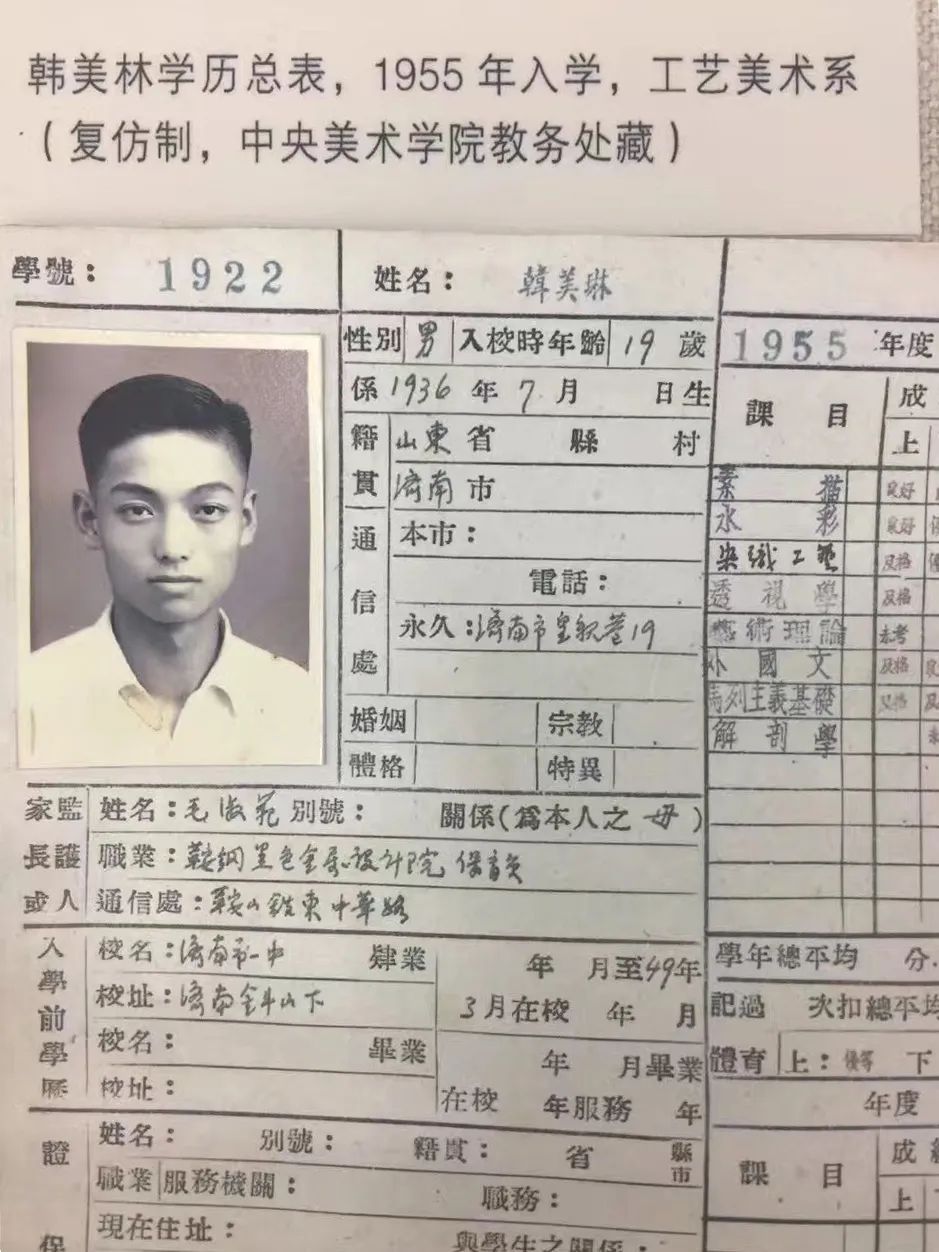 韩美林学历总表，1955 年入学，工艺美术系
（复仿制，中央美术学院教务处藏）
學號：1922
姓名：韓美琳
性別 男 入校時年齡 19 歲
係 1936 年 7 月 日生
籍貫 山東省 縣 村
濟南市
通信處 本市：
電話：
永久：濟南市皇親巷19
婚姻 宗教
體格 特異
家長或監護人 姓名：毛淑苑 別號： 關係(為本人之 母)
職業：鞍鋼黑色金属设计院 保育員
通信處：鞍山鉄東中華路
入學前學歷 校名：濟南市一中 肄業 年 月至49年
校址：濟南金牛山下 3月在校 年 月
校名： 畢業 年 月畢業
校址： 在校 年服務 年
證 保
姓名： 別號： 籍貫： 省 縣市
職業 服務機關： 職務：
現在住址： 與學生之關係：
1955 年度
課 目 成
上
素 描 良好
水 彩 良好
染織工藝 及格
透視學 及格
藝術理論 未考
外國文 及格
馬列主義基礎 及格
解剖學
學年總平均 分
記過 次扣總平均
體育 上：優等 下
年度
課 目 成績
上